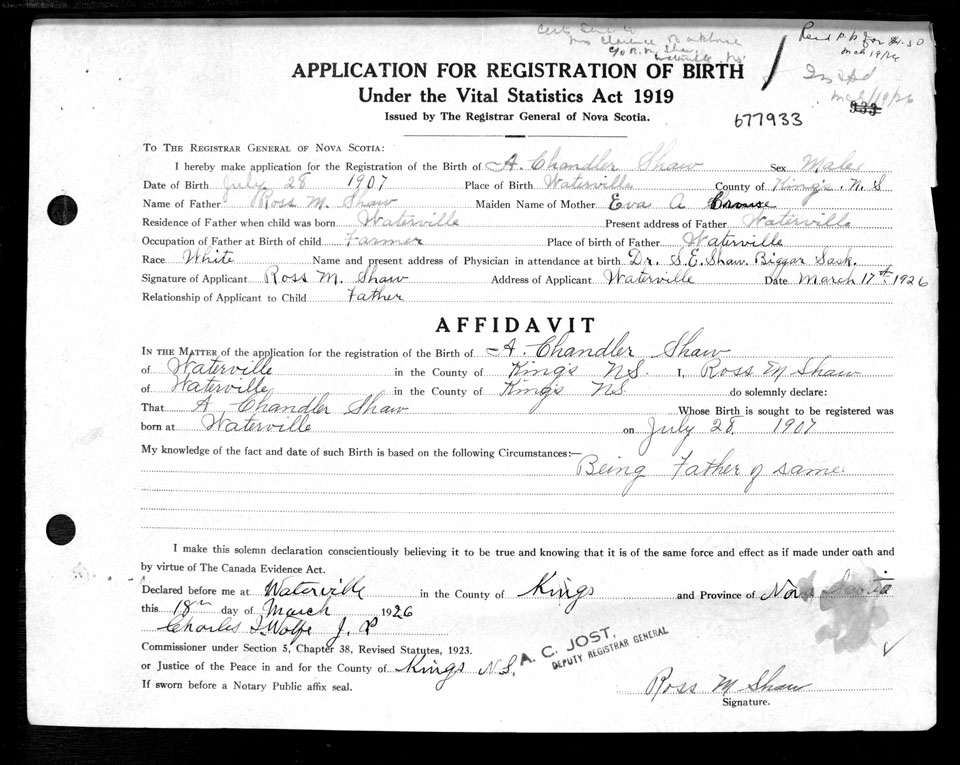 Mrs Clarence
c/o R. M. Shaw
Waterville, NS.
Mch 19/26
Mch/19/26
333
APPLICATION FOR REGISTRATION OF BIRTH
Under the Vital Statistics Act 1919
Issued by The Registrar General of Nova Scotia.
677933
To The Registrar General of Nova Scotia:
I hereby make application for the Registration of the Birth of A. Chandler Shaw Sex Male
Date of Birth July 28 1907 Place of Birth Waterville County of King's, N.S
Name of Father Ross M. Shaw Maiden Name of Mother Eva A
Residence of Father when child was born Waterville Present address of Father Waterville
Occupation of Father at Birth of child Farmer Place of birth of Father Waterville
Race White Name and present address of Physician in attendance at birth Dr. S.E. Shaw. Biggar Sask.
Signature of Applicant Ross M. Shaw Address of Applicant Waterville Date March 17th, 1926
Relationship of Applicant to Child Father
AFFIDAVIT
In the Matter of the application for the registration of the Birth of A. Chandler Shaw
of Waterville in the County of King's NS. I, Ross M Shaw
of Waterville in the County of King's NS do solemnly declare:
That A Chandler Shaw Whose Birth is sought to be registered was
born at Waterville on July 28. 1907
My knowledge of the fact and date of such Birth is based on the following Circumstances:—
Being Father of same
I make this solemn declaration conscientiously believing it to be true and knowing that it is of the same force and effect as if made under oath and
by virtue of The Canada Evidence Act.
Declared before me at Waterville in the County of Kings and Province of Nova Scotia
this 18th day of March 1926
Charles I. Wolfe J. P
Commissioner under Section 5, Chapter 38, Revised Statutes, 1923.
or Justice of the Peace in and for the County of Kings N.S.
A. C. JOST,
DEPUTY REGISTRAR GENERAL
If sworn before a Notary Public affix seal.
Ross M Shaw
Signature.